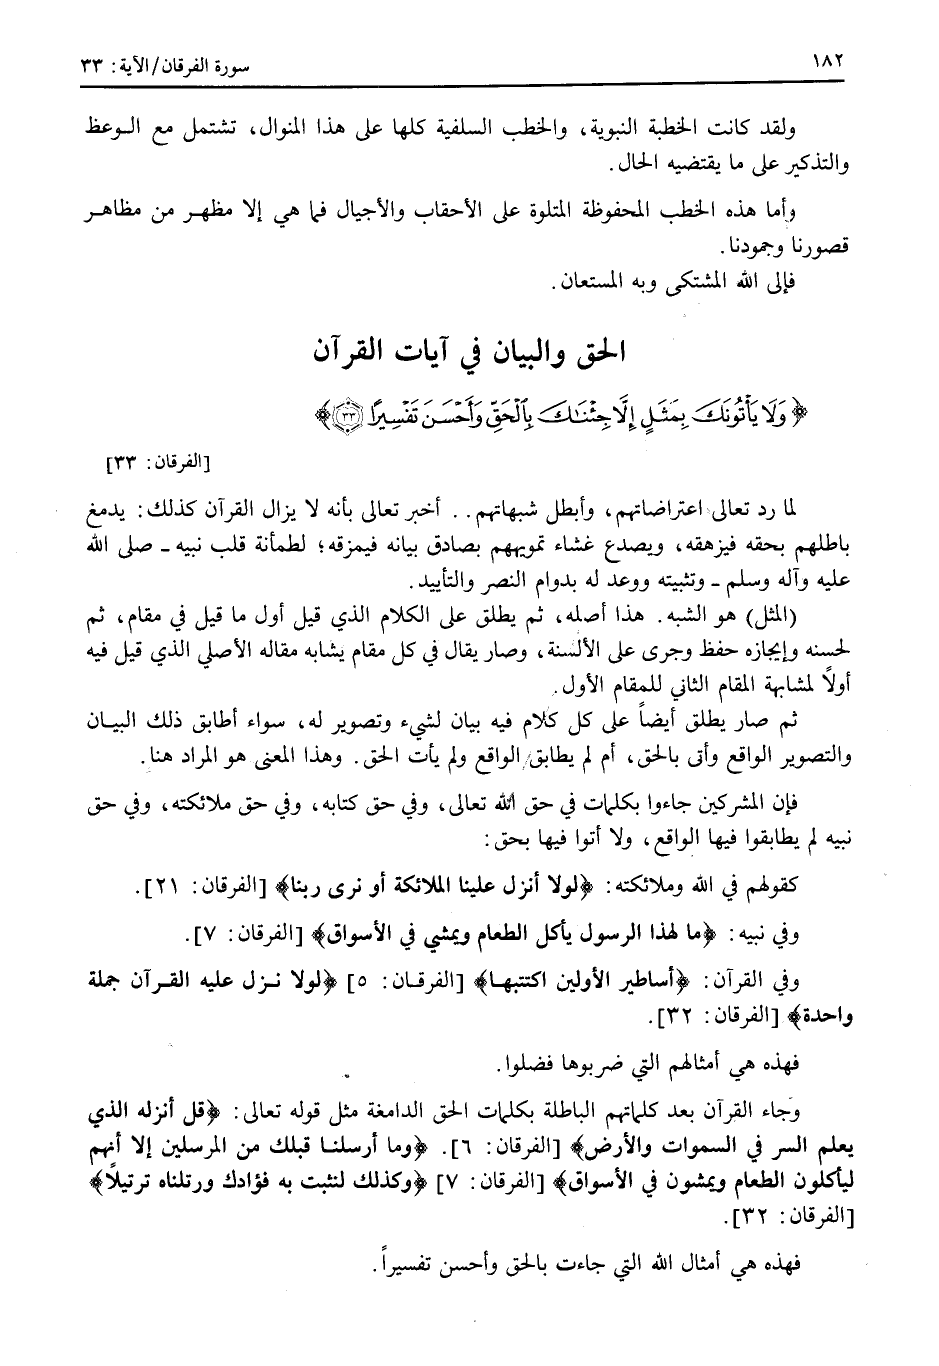 ١٨٢
سورة الفرقان/الآية: ٣٣
ولقد كانت الخطبة النبوية، والخطب السلفية كلها على هذا المنوال، تشتمل مع الوعظ
والتذكير على ما يقتضيه الحال.
وأما هذه الخطب المحفوظة المتلوة على الأحقاب والأجيال فما هي إلا مظهر من مظاهر
قصورنا وجمودنا.
فإلى الله المشتكى وبه المستعان.
الحق والبيان في آيات القرآن
﴿وَلَا يَأْتُونَكَ بِمَثَلٍ إِلَّا جِئْنَٰكَ بِٱلْحَقِّ وَأَحْسَنَ تَفْسِيرًا ٣٣﴾
[الفرقان: ٣٣]
لما رد تعالى اعتراضاتهم، وأبطل شبهاتهم.. أخبر تعالى بأنه لا يزال القرآن كذلك: يدمغ
باطلهم بحقه فيزهقه، ويصدع غشاء تمويههم بصادق بيانه فيمزقه؛ لطمأنة قلب نبيه ـ صلى الله
عليه وآله وسلم ـ وتثبيته ووعد له بدوام النصر والتأييد.
(المثل) هو الشبه. هذا أصله، ثم يطلق على الكلام الذي قيل أول ما قيل في مقام، ثم
لحسنه وإيجازه حفظ وجرى على الألسنة، وصار يقال في كل مقام يشابه مقاله الأصلي الذي قيل فيه
أولاً لمشابهة المقام الثاني للمقام الأول.
ثم صار يطلق أيضاً على كل كلام فيه بيان لشيء وتصوير له، سواء أطابق ذلك البيان
والتصوير الواقع وأتى بالحق، أم لم يطابق الواقع ولم يأت الحق. وهذا المعنى هو المراد هنا.
فإن المشركين جاءوا بكلمات في حق الله تعالى، وفي حق كتابه، وفي حق ملائكته، وفي حق
نبيه لم يطابقوا فيها الواقع، ولا أتوا فيها بحق:
كقولهم في الله وملائكته: ﴿لولا أنزل علينا الملائكة أو نرى ربنا﴾ [الفرقان: ٢١].
وفي نبيه: ﴿ما لهذا الرسول يأكل الطعام ويمشي في الأسواق﴾ [الفرقان: ٧].
وفي القرآن: ﴿أساطير الأولين اكتتبها﴾ [الفرقان: ٥] ﴿لولا نزل عليه القرآن جملة
واحدة﴾ [الفرقان: ٣٢].
فهذه هي أمثالهم التي ضربوها فضلوا.
وجاء القرآن بعد كلماتهم الباطلة بكلمات الحق الدامغة مثل قوله تعالى: ﴿قل أنزله الذي
يعلم السر في السموات والأرض﴾ [الفرقان: ٦]. ﴿وما أرسلنا قبلك من المرسلين إلا أنهم
ليأكلون الطعام ويمشون في الأسواق﴾ [الفرقان: ٧] ﴿وكذلك لنثبت به فؤادك ورتلناه ترتيلاً﴾
[الفرقان: ٣٢].
فهذه هي أمثال الله التي جاءت بالحق وأحسن تفسيراً.